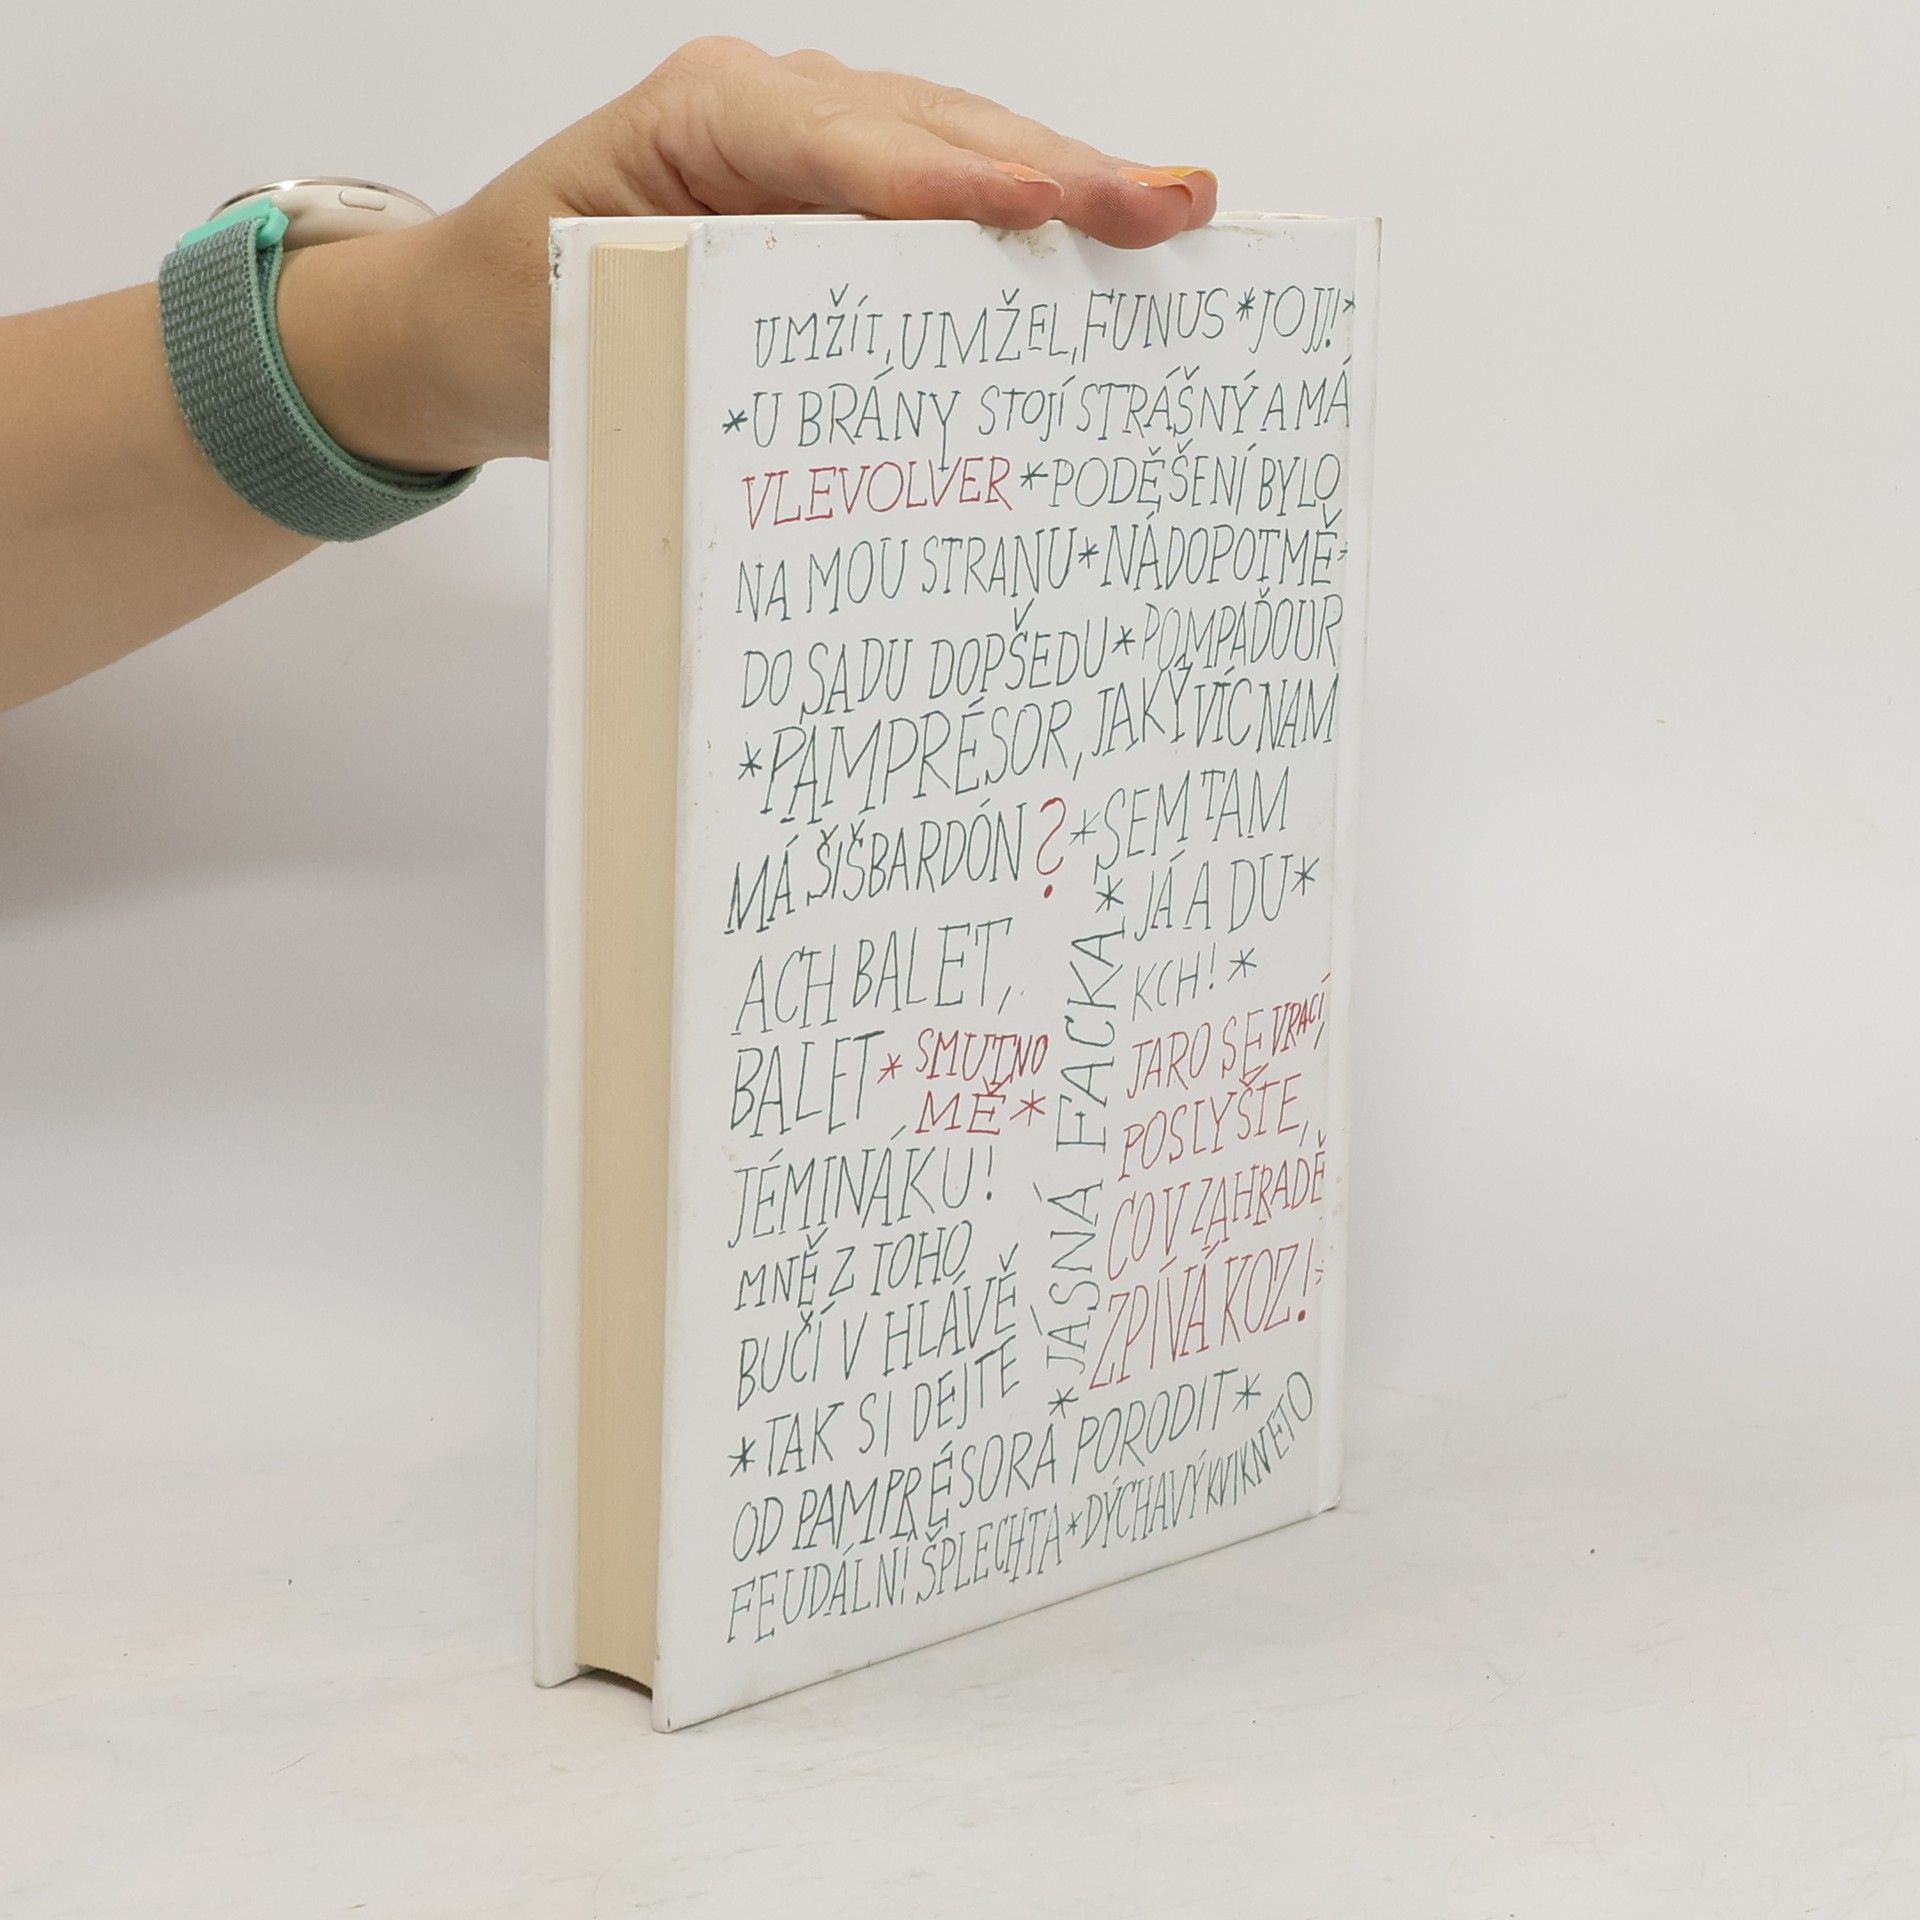 UMŽÍT, UMŽEL, FUNUS * JOJJ! *
* U BRÁNY STOJÍ STRÁŠNÝ A MÁ
VLEVOLVER * PODĚŠENÍ BYLO
NA MOU STRANU * NÁDOPOTMĚ *
DO SADU DOPŠEDU * POMPAĎOUR
* PAMPRÉSOR, JAKÝ VÍC NAM
MÁ ŠIŠBARDÓN? * SEM TAM
JÁ A DU *
KCH! *
ACH BALET,
BALET * SMUTNO
MĚ *
JÉMINÁKU!
MNĚ Z TOHO
BUČÍ V HLÁVĚ
* TAK SI DEJTE
* JÁSNÁ FACKA *
JARO SE VRACÍ,
POSLYŠTE,
CO V ZAHRADĚ
ZPÍVÁ KOZ! *
OD PAMPRÉSORA PORODIT *
FEUDÁLNÍ ŠPLECHTA * DÝCHAVÝ KVIKNĚTO